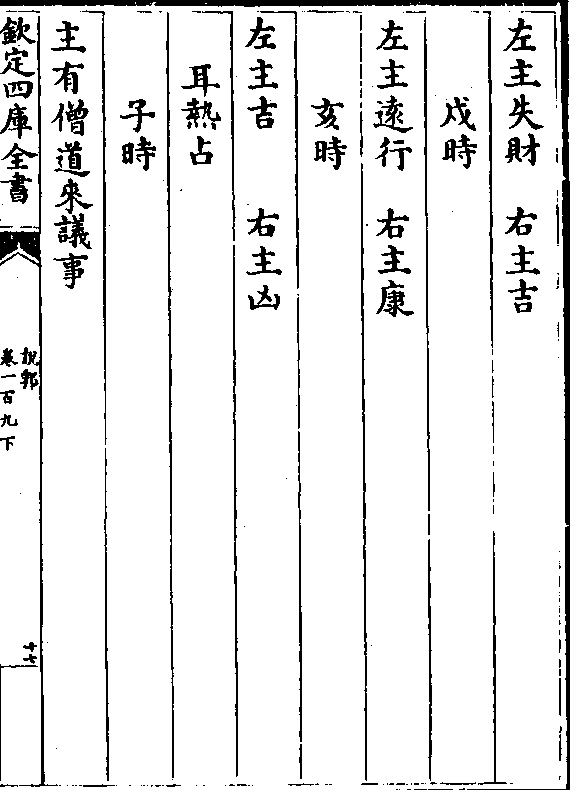 左主失財　右主吉
戌時
左主遠行　右主康
亥時
左主吉　右主凶
耳熱占
子時
主有僧道來議事
欽定四庫全書
說郛
卷一百九下
十七